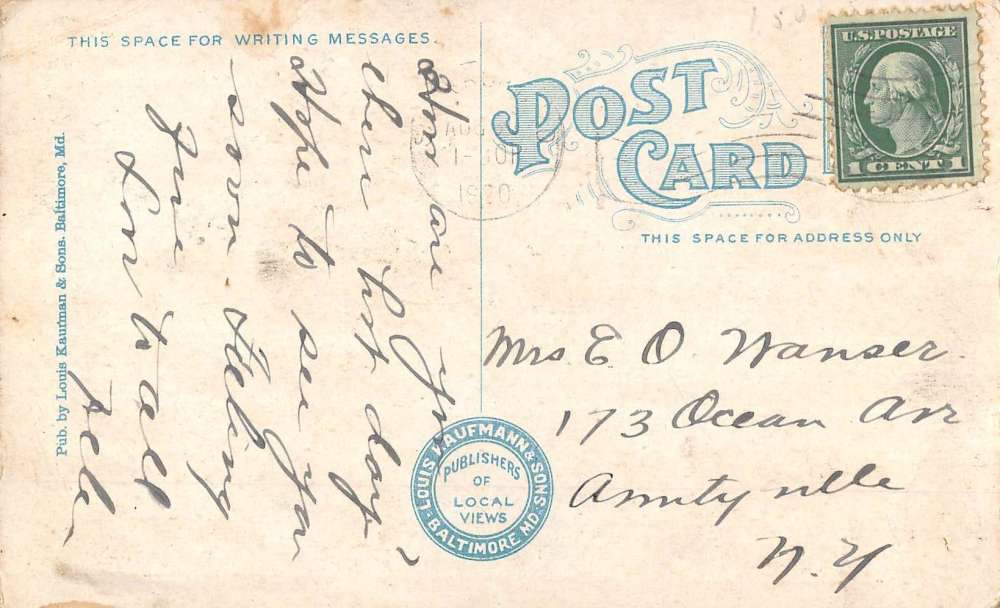 THIS SPACE FOR WRITING MESSAGES.
How are you
these hot days
Hope to see you
soon feeling
fine
Love to all
Pub. by Louis Kaufman & Sons. Baltimore, Md.
POST
CARD
THIS SPACE FOR ADDRESS ONLY
U.S. POSTAGE
1 CENT 1
AUG
1920
Mrs E O Wanser.
173 Ocean Ave
Amityville
N.Y
LOUIS KAUFMANN & SONS
BALTIMORE MD.
PUBLISHERS
OF
LOCAL
VIEWS